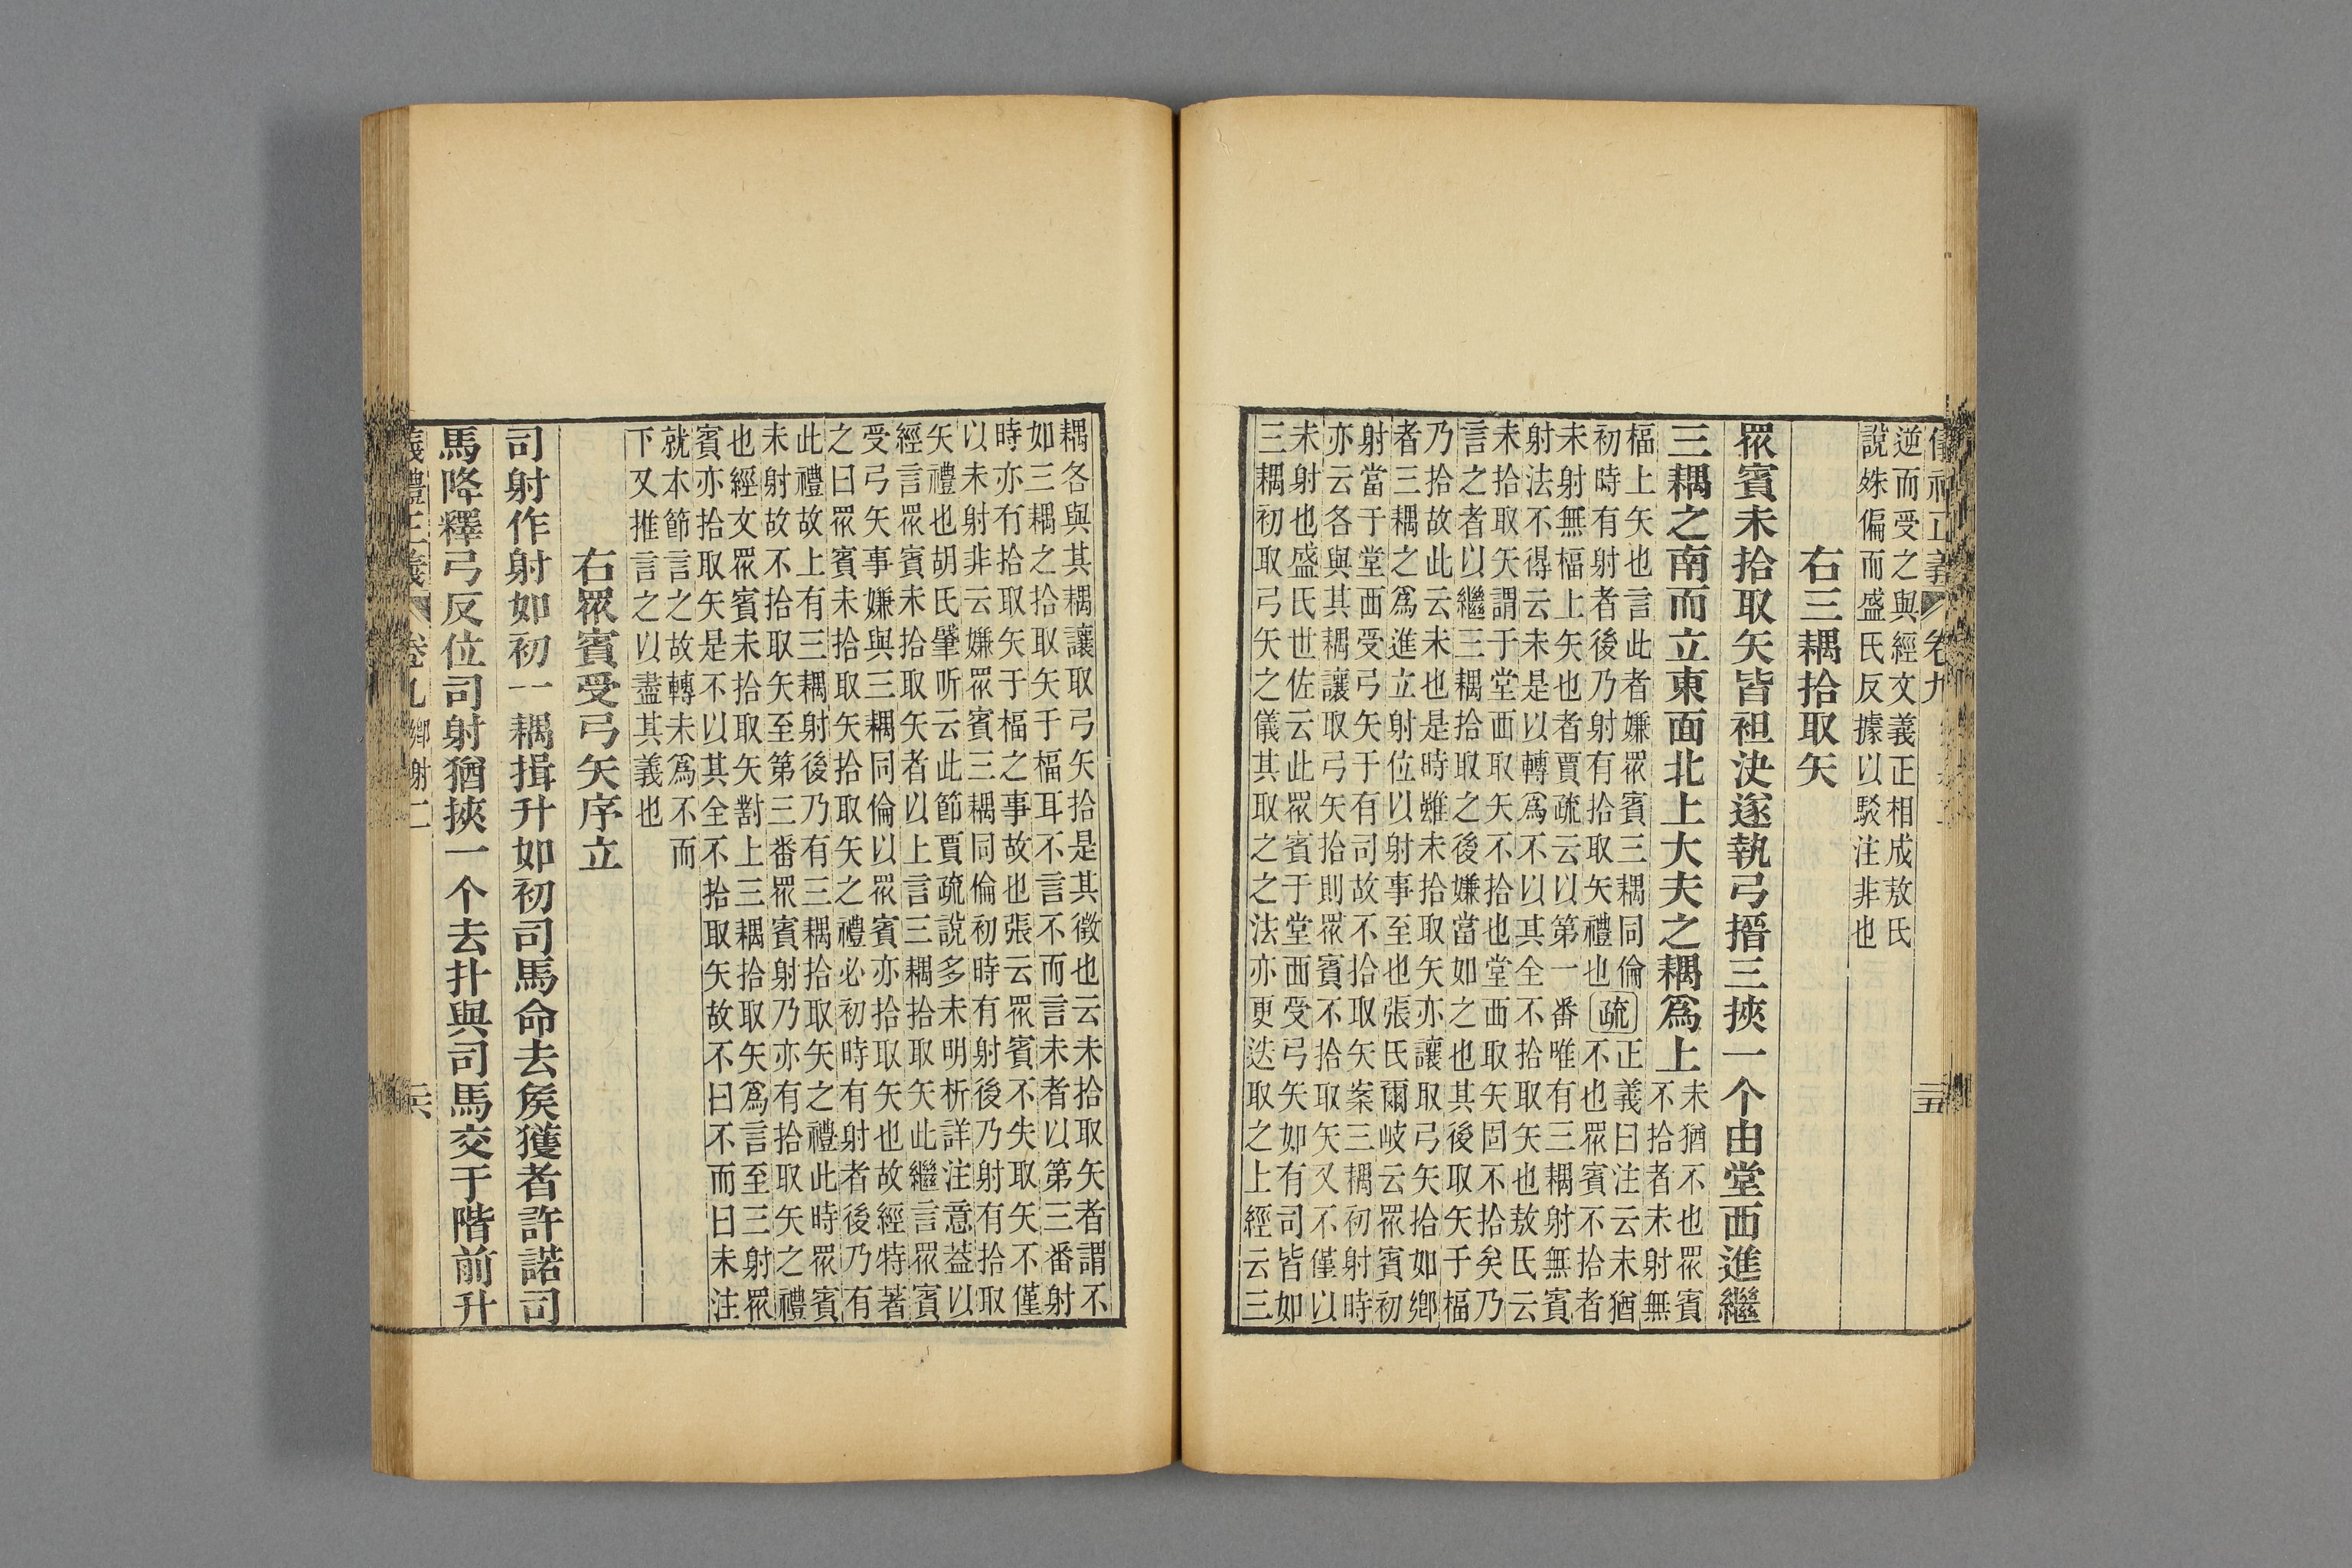 儀禮正義 卷九 二五
逆而受之與經文義正相成敖氏
說姝偏而盛氏反據以駁注非也
右三耦拾取矢
眾賓未拾取矢皆袒決遂執弓搢三挾一个由堂西進繼
三耦之南而立東面北上大夫之耦爲上
未猶不也眾賓
不拾者未射無
楅上矢也言此者嫌眾賓三耦同倫
初時有射者後乃射有拾取矢禮也
疏
正義曰注云未猶
不也眾賓不拾者
未射無楅上矢也者賈疏云以第一番唯有三耦射無賓
射法不得云未是以轉爲不以其全不拾取矢也敖氏云
未拾取矢謂于堂西取矢不拾也堂西取矢固不拾矣乃
言之者以繼三耦拾取之後嫌當如之也其後取矢于楅
乃拾故此云未也是時雖未拾取矢亦讓取弓矢拾如鄉
者三耦之爲進立射位以射事至也張氏爾岐云眾賓初
射當于堂西受弓矢于有司故不拾取矢案三耦初射時
亦云各與其耦讓取弓矢拾則眾賓不拾取矢又不僅以
未射也盛氏世佐云此眾賓于堂西受弓矢如有司皆如
三耦初取弓矢之儀其取之之法亦更迭取之上經云三
耦各與其耦讓取弓矢拾是其徵也云未拾取矢者謂不
如三耦之拾取矢于楅耳不言不而言未者以第三番射
時亦有拾取矢于楅之事故也張云眾賓不失取矢不僅
以未射非云嫌眾賓三耦同倫初時有射後乃射有拾取
矢禮也胡氏肇昕云此節賈疏說多未明析詳注意蓋以
經言眾賓未拾取矢者以上言三耦拾取矢此繼言眾賓
受弓矢事嫌與三耦同倫以眾賓亦拾取矢也故經特著
之曰眾賓未拾取矢拾取矢之禮必初時有射者後乃有
此禮故上有三耦射後乃有三耦拾取矢之禮此時眾賓
未射故不拾取矢至第三番眾賓射乃亦有拾取矢之禮
也經文眾賓未拾取矢對上三耦拾取矢爲言至三射眾
賓亦拾取矢是不以其全不拾取矢故不曰不而曰未注
就本節言之故轉未爲不而
下又推言之以盡其義也
右眾賓受弓矢序立
司射作射如初一耦揖升如初司馬命去矦獲者許諾司
馬降釋弓反位司射猶挾一个去扑與司馬交于階前升
儀禮正義 卷九 鄉射二 二六